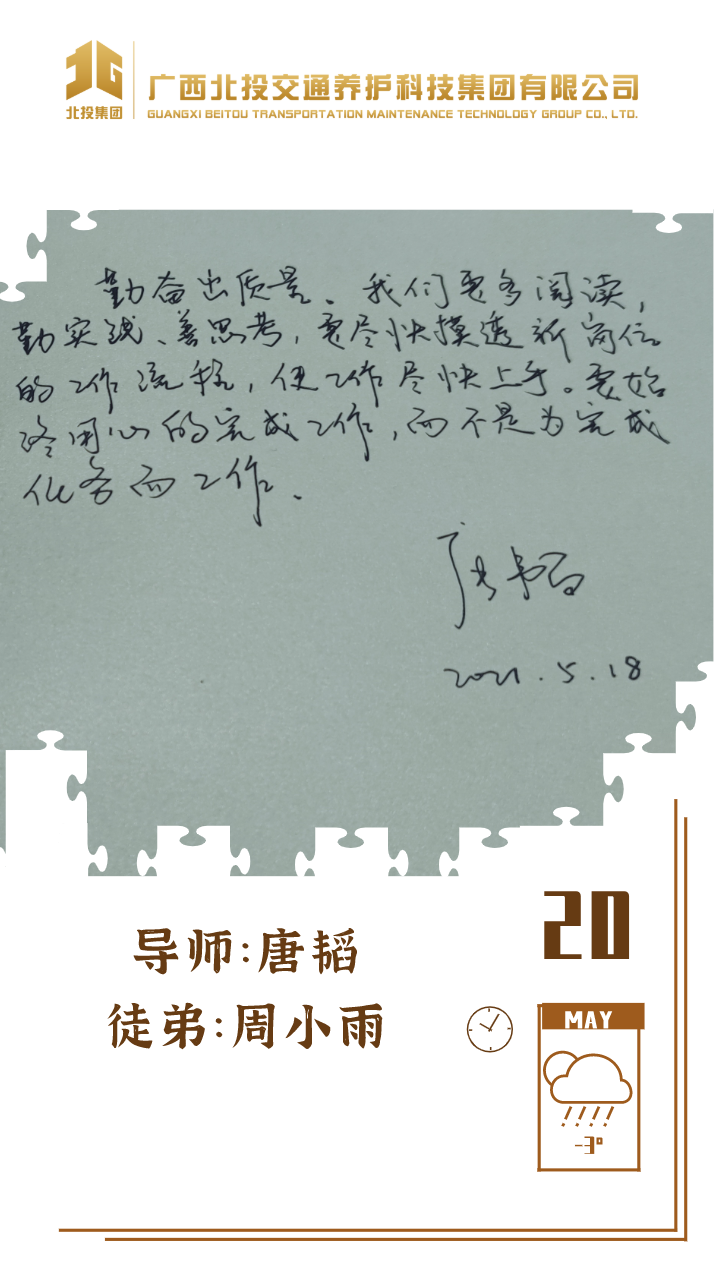 北投集团
广西北投交通养护科技集团有限公司
GUANGXI BEITOU TRANSPORTATION MAINTENANCE TECHNOLOGY GROUP CO., LTD.
勤奋出质量。我们要多阅读，
勤实践、善思考，要尽快摸透新岗位
的工作流程，使工作尽快上手。要始
终用心的完成工作，而不是为完成
任务而工作.
唐韬
2021.5.18
导师:唐韬
徒弟:周小雨
20
MAY
-3°